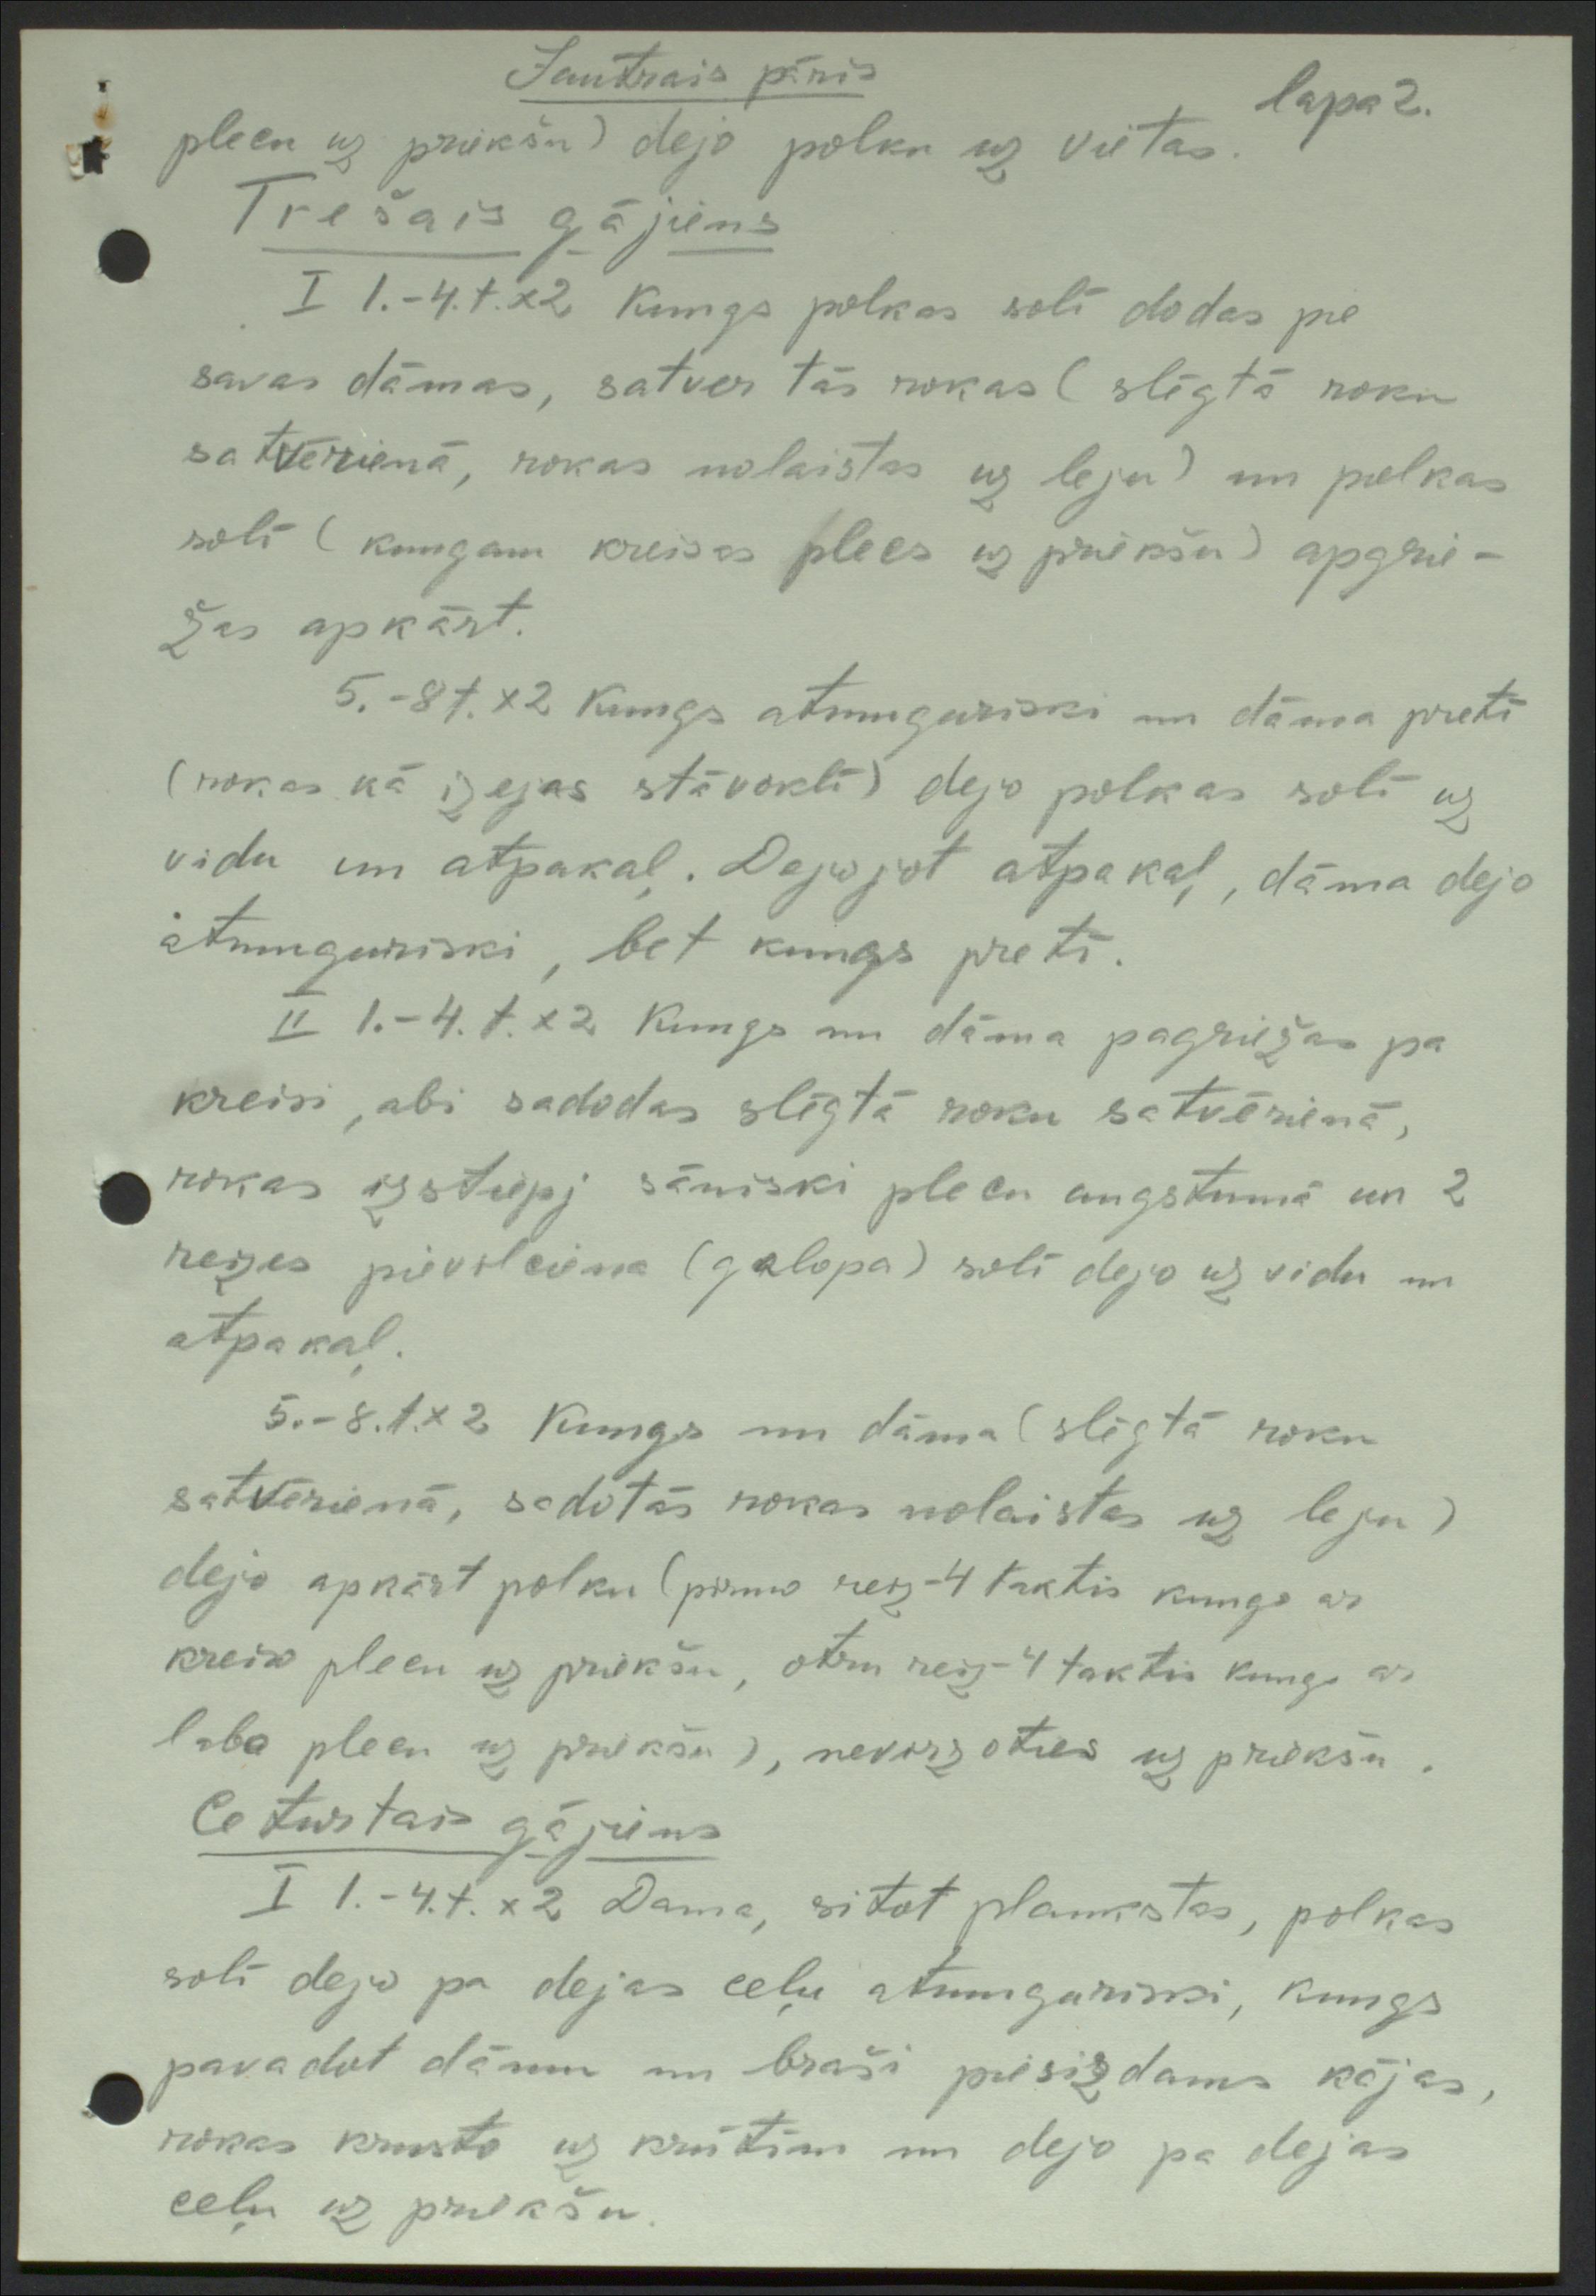 Jautrais pāris
lapa 2.
plecu uz priekšu) dejo polku uz vietas.
Trešais gājiens
I 1.-4.t.x2 Kungs polkas solī dodas pie
savas dāmas, satver tās rokas (slēgtā roku
satvērienā, rokas nolaistas uz leju) un polkas
solī (kungam kreisas plecs uz priekšu) apgrie-
žas apkārt.
5.-8t.x2 Kungs atmuguriski un dāma pretī
(rokas kā izejas stāvoklī) dejo polkas solī uz
vidu un atpakaļ. Dejojot atpakaļ, dāma dejo
atmuguriski, bet kungs pretī.
II 1.-4.t.x2 Kungs un dāma pagriežas pa
kreisi, abi sadodas slēgtā roku satvērienā,
rokas izstiepj sāniski plecu augstumā un 2
reizes pievilciena (galopa) solī dejo uz vidu un
atpakaļ.
5.-8.t.x2 Kungs un dāma (slēgtā roku
satvērienā, sadotās rokas nolaistas uz leju)
dejo apkārt polku (pirmo reiz-4 taktis kungs ar
kreiso plecu uz priekšu, otru reiz-4 taktis kungs ar
labo plecu uz priekšu), nevirzoties uz priekšu.
Ceturtais gājiens
I 1.-4.t.x2 Dama, sitot plaukstas, polkas
solī dejo pa dejas ceļu atmuguriski, kungs
pavadot dāmu un braši piesizdams kājas,
rokas krusto uz krūtīm un dejo pa dejas
ceļu uz priekšu.